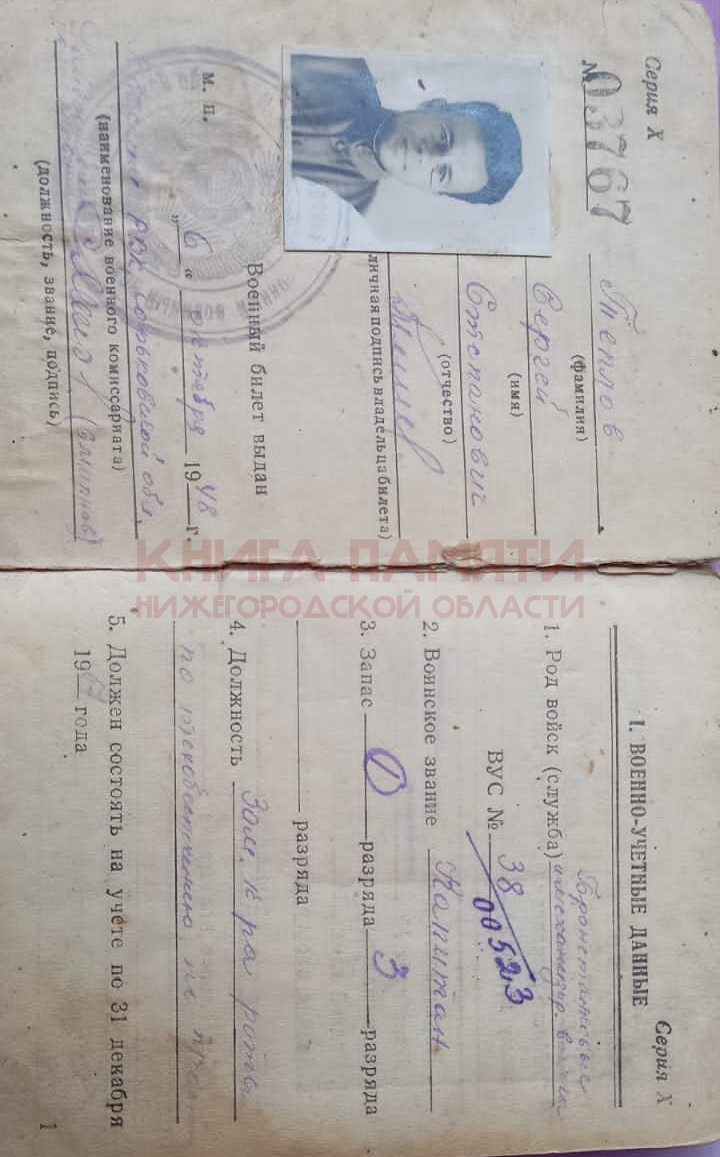 Серия Х
№ 03767
Теплов
(фамилия)
Сергей
(имя)
Степанович
(отчество)
личная подпись владельца билета)
Военный билет выдан
м. п.
„ 6 “ октября 1948 г.
РВК Горьковской обл.
(наименование военного комиссариата)
(должность, звание, подпись)
КНИГА ПАМЯТИ
НИЖЕГОРОДСКОЙ ОБЛАСТИ
Серия Х
I. ВОЕННО-УЧЕТНЫЕ ДАННЫЕ
Бронетанковые
1. Род войск (служба) и механизир. войска
ВУС № 38
00523
2. Воинское звание Капитан
3. Запас 1 разряда 3 разряда
разряда
4. Должность Зам. к-ра роты
по
5. Должен состоять на учёте по 31 декабря
19 года
1